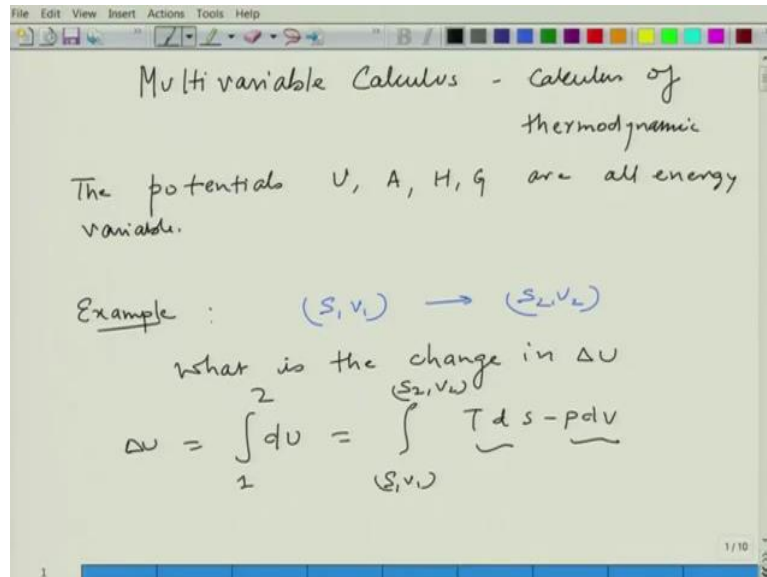 File Edit View Insert Actions Tools Help
Multivariable Calculus - Calculus of
thermodynamic
The potentials U, A, H, G are all energy
variable.
Example : (S₁V₁) → (S₂,V₂)
What is the change in ΔU
ΔU = ∫₁² dU = ∫_(S₁V₁)^(S₂,V₂) Tds - pdv
1/10
1